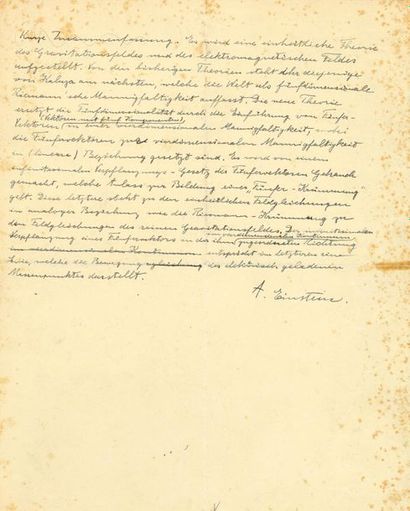 Kurze Zusammenfassung. Es wird eine einheitliche Theorie
des Gravitationsfeldes und des elektromagnetischen Feldes
aufgestellt. Von den bisherigen Theorien steht ihr diejenige
von Kaluza am nächsten, welche die Welt als fünfdimensionale
Riemann'sche Mannigfaltigkeit auffasst. Die neue Theorie
ersetzt die Fünfdimensionalität durch die Einführung von Fünfer-
Vektoren (Vektoren mit fünf Komponenten) in einer vierdimensionalen Mannigfaltigkeit, wobei
die Fünfervektoren zur vierdimensionalen Mannigfaltigkeit
in (linearer) Beziehung gesetzt sind. Es wird von einem
infinitesimalen Verpflanzungs-Gesetz der Fünfervektoren Gebrauch
gemacht, welche Anlass zur Bildung einer "Fünfer-Krümmung"
gibt. Diese letztere steht zu den einheitlichen Feldgleichungen
in analoger Beziehung wie die Riemann-Krümmung zu
den Feldgleichungen des reinen Gravitationsfeldes. Der infinitesimalen
Verpflanzung eines Fünfervektors in der ihm zugeordneten Richtung
im vierdimensionalen Kontinuum entspricht in letzterem eine
Linie, welche die Bewegung des elektrisch geladenen
Massenpunktes darstellt.
A. Einstein.